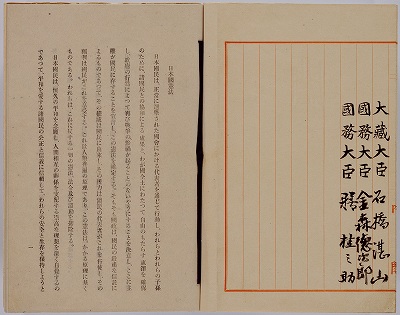 大藏大臣 石橋湛山
國務大臣 金森德次郎
國務大臣 膳桂之助
日本國憲法
日本國民は、正當に選擧された國會における代表者を通じて行動し、われらとわれらの子孫
のために、諸國民との協和による成果と、わが國全土にわたつて自由のもたらす惠澤を確保
し、政府の行爲によつて再び戰爭の慘禍が起ることのないやうにすることを決意し、ここに主
權が國民に存することを宣言し、この憲法を確定する。そもそも國政は、國民の嚴肅な信託に
よるものであつて、その權威は國民に由來し、その權力は國民の代表者がこれを行使し、その
福利は國民がこれを享受する。これは人類普遍の原理であり、この憲法は、かかる原理に基く
ものである。われらは、これに反する一切の憲法、法令及び詔勅を排除する。
日本國民は、恒久の平和を念願し、人間相互の關係を支配する崇高な理想を深く自覺するの
であつて、平和を愛する諸國民の公正と信義に信頼して、われらの安全と生存を保持しようと
一